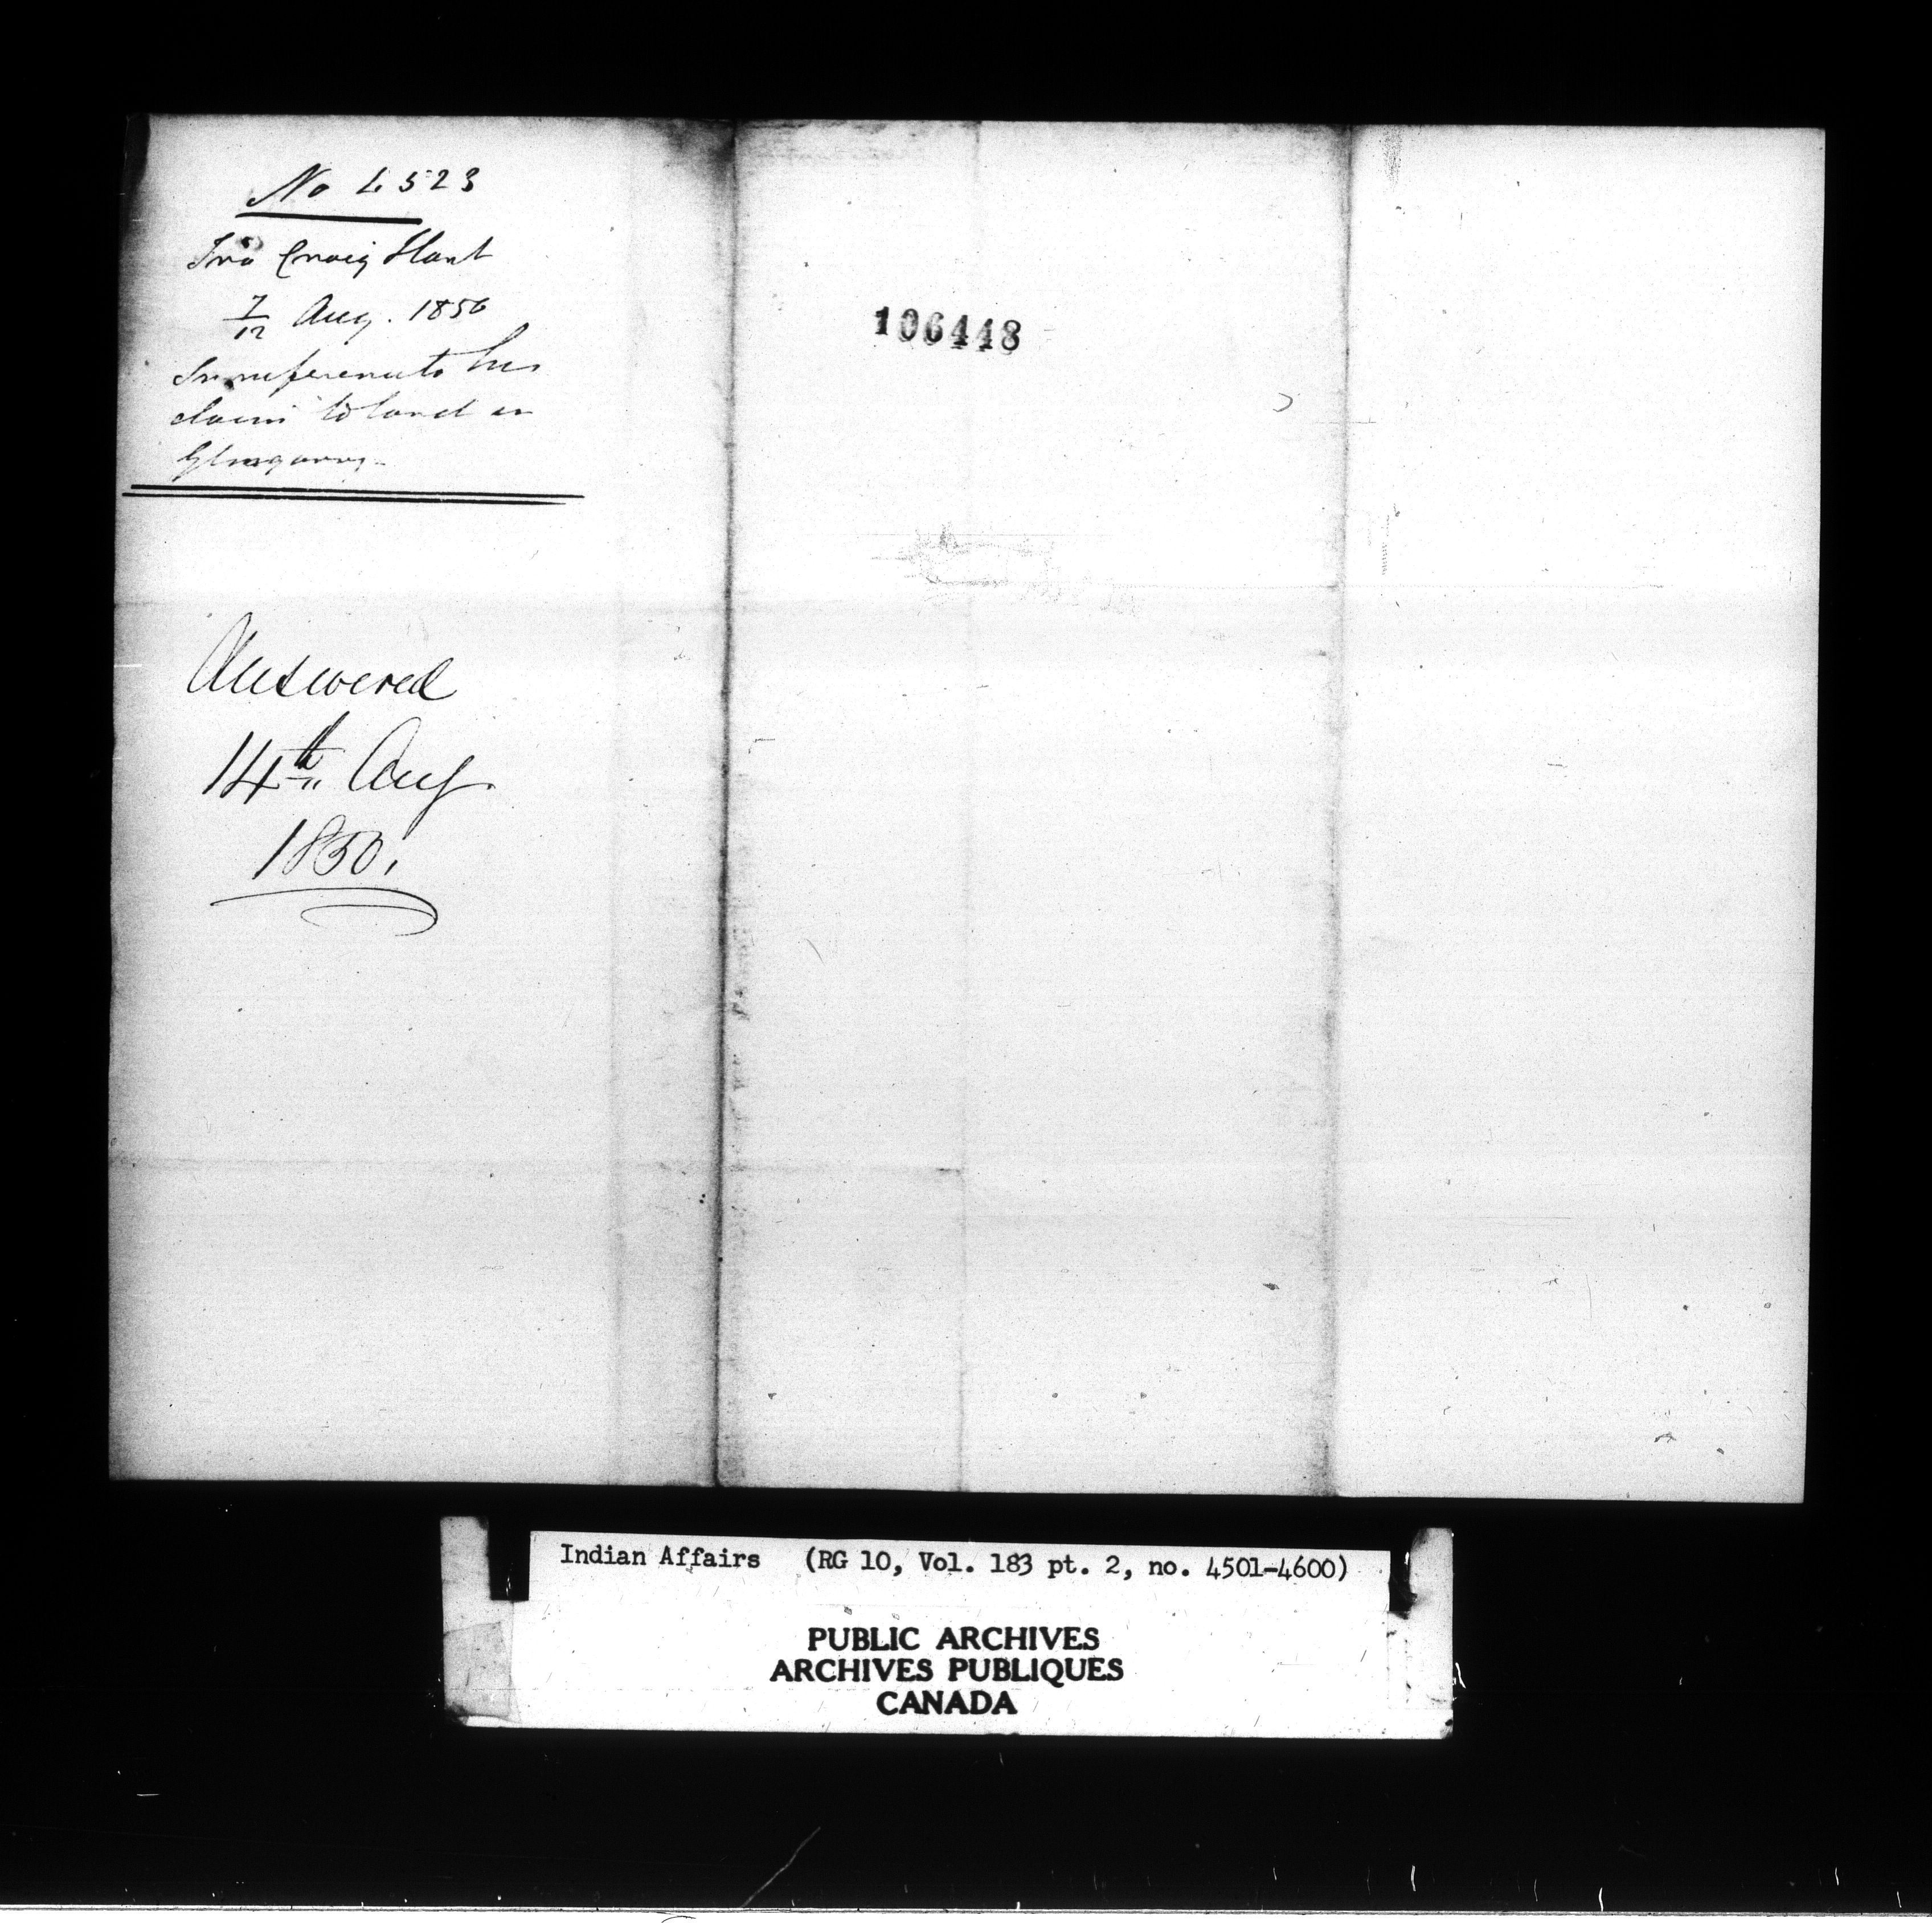 No 4523
Craig
7/12 Aug. 1850
In reference to his
claim to land in
Glengarry.
Answered
14th Aug
1850.
106448
Indian Affairs (RG 10, Vol. 183 pt. 2, no. 4501-4600)
PUBLIC ARCHIVES
ARCHIVES PUBLIQUES
CANADA